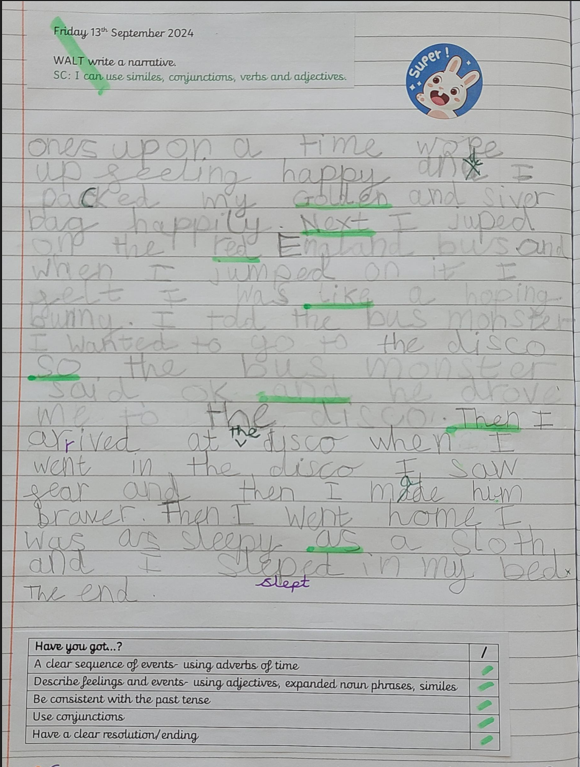 Friday 13th September 2024
WALT write a narrative.
SC: I can use similes, conjunctions, verbs and adjectives.
Super!
ones upon a time woке
up feeling happy and I
packed my Golden and siver
bag happily. Next I juped
on the red England bus and
when I jumped on it I
felt I was like a hoping
bunny. I told the bus monster
I wanted to go to the disco
so the bus monster
said ok and he drove
me to the disco. Then I
arrived at the disco when I
went in the disco I saw
fear and then I made him
braver. Then I went home I
was as sleepy as a sloth
and I sleped in my bed.
slept
The end.
Have you got...? /
A clear sequence of events- using adverbs of time
Describe feelings and events- using adjectives, expanded noun phrases, similes
Be consistent with the past tense
Use conjunctions
Have a clear resolution/ending